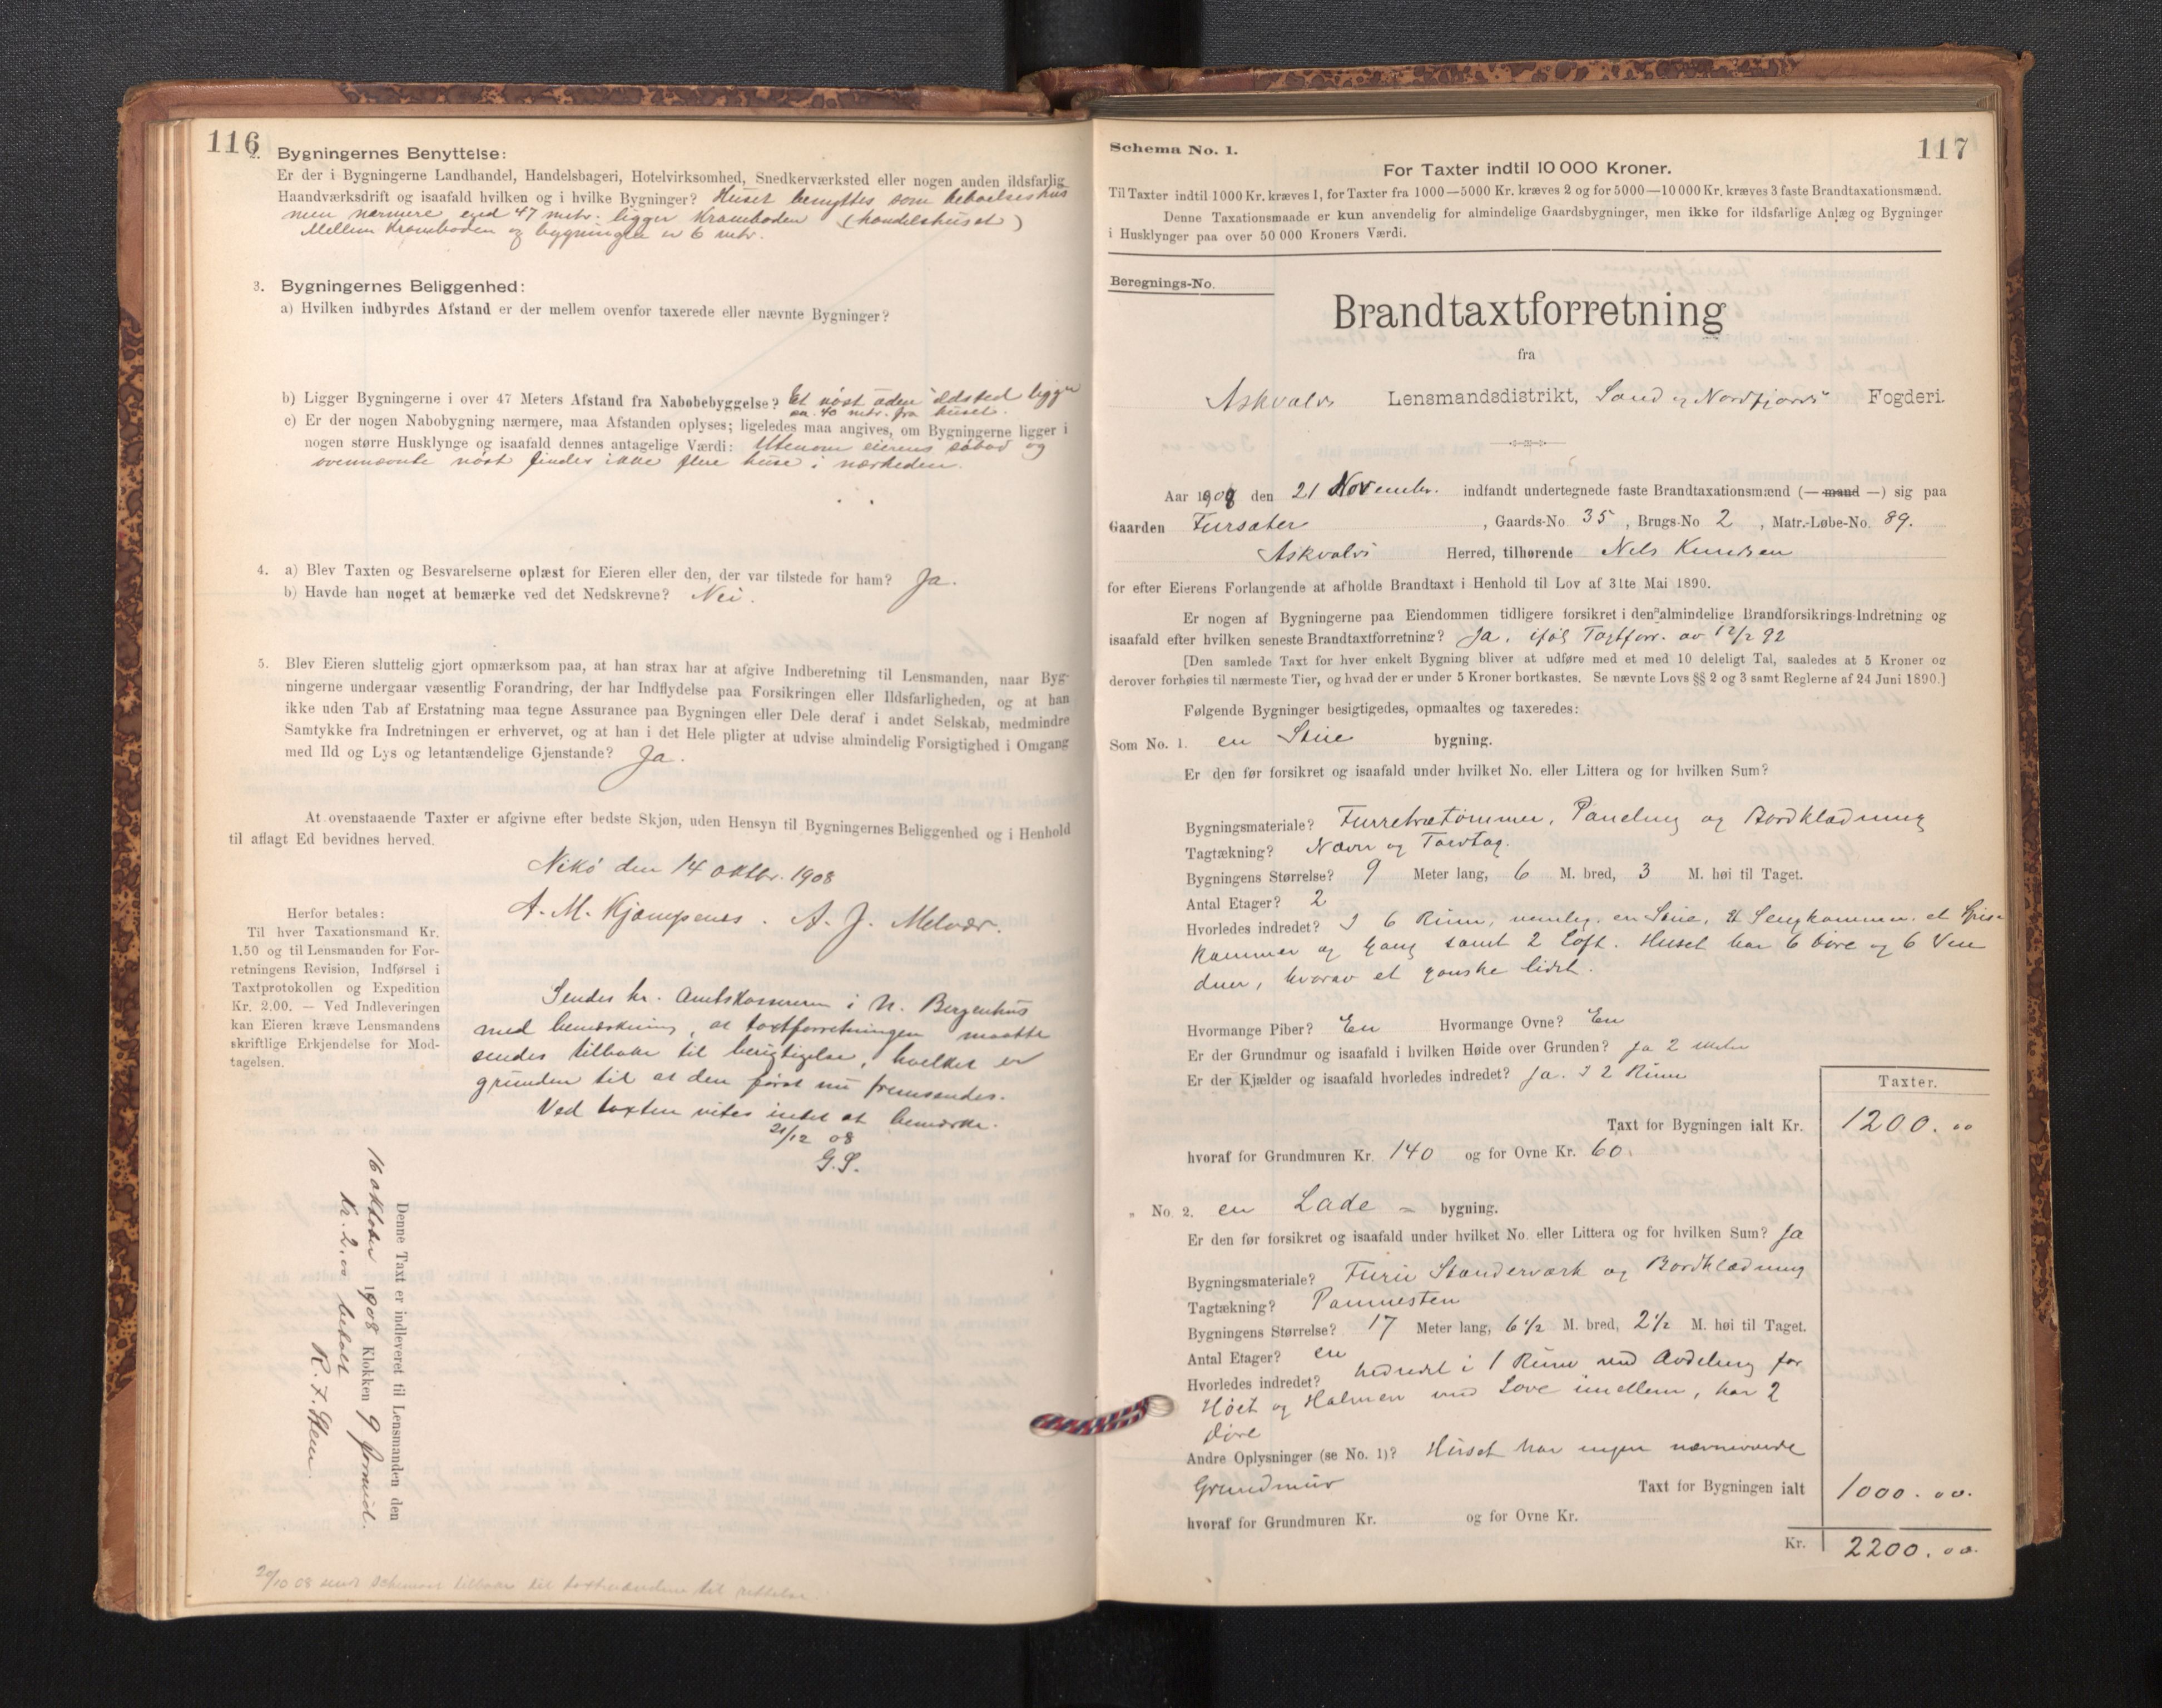 116
2. Bygningernes Benyttelse:
Er der i Bygningerne Landhandel, Handelsbageri, Hotelvirksomhed, Snedkerværksted eller nogen anden ildsfarlig
Haandværksdrift og isaafald hvilken og i hvilke Bygninger? Huset benyttes som beboelseshus
men nærmere end 47 mtr. ligger Kramboden (handelshuset)
Mellem Kramboden og bygningen er 6 mtr.
3. Bygningernes Beliggenhed:
a) Hvilken indbyrdes Afstand er der mellem ovenfor taxerede eller nævnte Bygninger?
b) Ligger Bygningerne i over 47 Meters Afstand fra Nabobebyggelse? Et nöst uden ildsted ligger
ca. 40 mtr. fra huset.
c) Er der nogen Nabobygning nærmere, maa Afstanden oplyses; ligeledes maa angives, om Bygningerne ligger i
nogen større Husklynge og isaafald dennes antagelige Værdi: Utenom eierens söbod og
ovennævnte nöst findes ikke flere huse i nærheden.
4. a) Blev Taxten og Besvarelserne oplæst for Eieren eller den, der var tilstede for ham? Ja.
b) Havde han noget at bemærke ved det Nedskrevne? Nei.
5. Blev Eieren sluttelig gjort opmærksom paa, at han strax har at afgive Indberetning til Lensmanden, naar Byg-
ningerne undergaar væsentlig Forandring, der har Indflydelse paa Forsikringen eller Ildsfarligheden, og at han
ikke uden Tab af Erstatning maa tegne Assurance paa Bygningen eller Dele deraf i andet Selskab, medmindre
Samtykke fra Indretningen er erhvervet, og at han i det Hele pligter at udvise almindelig Forsigtighed i Omgang
med Ild og Lys og letantændelige Gjenstande? Ja.
At ovenstaaende Taxter er afgivne efter bedste Skjøn, uden Hensyn til Bygningernes Beliggenhed og i Henhold
til aflagt Ed bevidnes herved.
Nikö den 14 oktbr. 1908
A. M. Kjempenes. A. J. Melvær.
Herfor betales:
Til hver Taxationsmand Kr.
1.50 og til Lensmanden for For-
retningens Revision, Indførsel i
Taxtprotokollen og Expedition
Kr. 2.00. — Ved Indleveringen
kan Eieren kræve Lensmandens
skriftlige Erkjendelse for Mod-
tagelsen.
Sendes hr. Amtskasserer i N. Bergenhus
med bemerkning, at taxtforretningen maatte
sendes tilbake til berigtigelse, hvilket er
grunden til at den först nu fremsendes.
Ved taxten vites intet at bemerke.
21/12 08
G.S.
Denne Taxt er indleveret til Lensmanden den
16 oktober 1908 Klokken 9 formid.
Kr. 2.00 betalt
20/10 08 sendt schemaet tilbake til taxtmændene til rettelse
117
Schema No. 1.
For Taxter indtil 10 000 Kroner.
Til Taxter indtil 1000 Kr. kræves 1, for Taxter fra 1000—5000 Kr. kræves 2 og for 5000—10 000 Kr. kræves 3 faste Brandtaxationsmænd.
Denne Taxationsmaade er kun anvendelig for almindelige Gaardsbygninger, men ikke for ildsfarlige Anlæg og Bygninger
i Husklynger paa over 50 000 Kroners Værdi.
Beregnings-No.
Brandtaxtforretning
fra
Askvold Lensmandsdistrikt, Sönd og Nordfjords Fogderi.
Aar 1908 den 21 Novembr. indfandt undertegnede faste Brandtaxationsmænd (— mand —) sig paa
Gaarden Fursæter, Gaards-No. 35, Brugs-No 2, Matr.-Løbe-No. 89.
Askvold Herred, tilhørende Nels Knudsen
for efter Eierens Forlangende at afholde Brandtaxt i Henhold til Lov af 31te Mai 1890.
Er nogen af Bygningerne paa Eiendommen tidligere forsikret i den almindelige Brandforsikrings-Indretning og
isaafald efter hvilken seneste Brandtaxtforretning? Ja, iföl Taxtforr. av 12/2 92
[Den samlede Taxt for hver enkelt Bygning bliver at udføre med et med 10 deleligt Tal, saaledes at 5 Kroner og
derover forhøies til nærmeste Tier, og hvad der er under 5 Kroner bortkastes. Se nævnte Lovs §§ 2 og 3 samt Reglerne af 24 Juni 1890.]
Følgende Bygninger besigtigedes, opmaaltes og taxeredes:
Som No. 1. en Stue bygning.
Er den før forsikret og isaafald under hvilket No. eller Littera og for hvilken Sum?
Bygningsmateriale? Furretrætømmer, Paneling og Bordklædning
Tagtækning? Næver og Torvtag.
Bygningens Størrelse? 9 Meter lang, 6 M. bred, 3 M. høi til Taget.
Antal Etager? 2
Hvorledes indredet? I 6 Rum, nemlig. en Stue, et Sengkammer. et Spise
Kammer og Gang samt 2 Loft. Huset har 6 döre og 6 Vin
duer, hvorav et ganske lidet.
Hvormange Piber? En Hvormange Ovne? En
Er der Grundmur og isaafald i hvilken Høide over Grunden? Ja 2 Meter
Er der Kjælder og isaafald hvorledes indredet? Ja. I 2 Rum
Taxter.
Taxt for Bygningen ialt Kr. 1200.00
hvoraf for Grundmuren Kr. 140 og for Ovne Kr. 60.
" No. 2. en Lade - bygning.
Er den før forsikret og isaafald under hvilket No. eller Littera og for hvilken Sum? Ja
Bygningsmateriale? Furu Standerværk og Bordklædning
Tagtækning? Pannesten
Bygningens Størrelse? 17 Meter lang, 6 1/2 M. bred, 2 1/2 M. høi til Taget.
Antal Etager? en
Hvorledes indredet? Indredet i 1 Rum med Avdeling for
Höet og Halmen med Love imellem, har 2
döre
Andre Oplysninger (se No. 1)? Huset har ingen nævneværde
Grundmur Taxt for Bygningen ialt 1000.00.
hvoraf for Grundmuren Kr. og for Ovne Kr.
Kr. 2200.00.